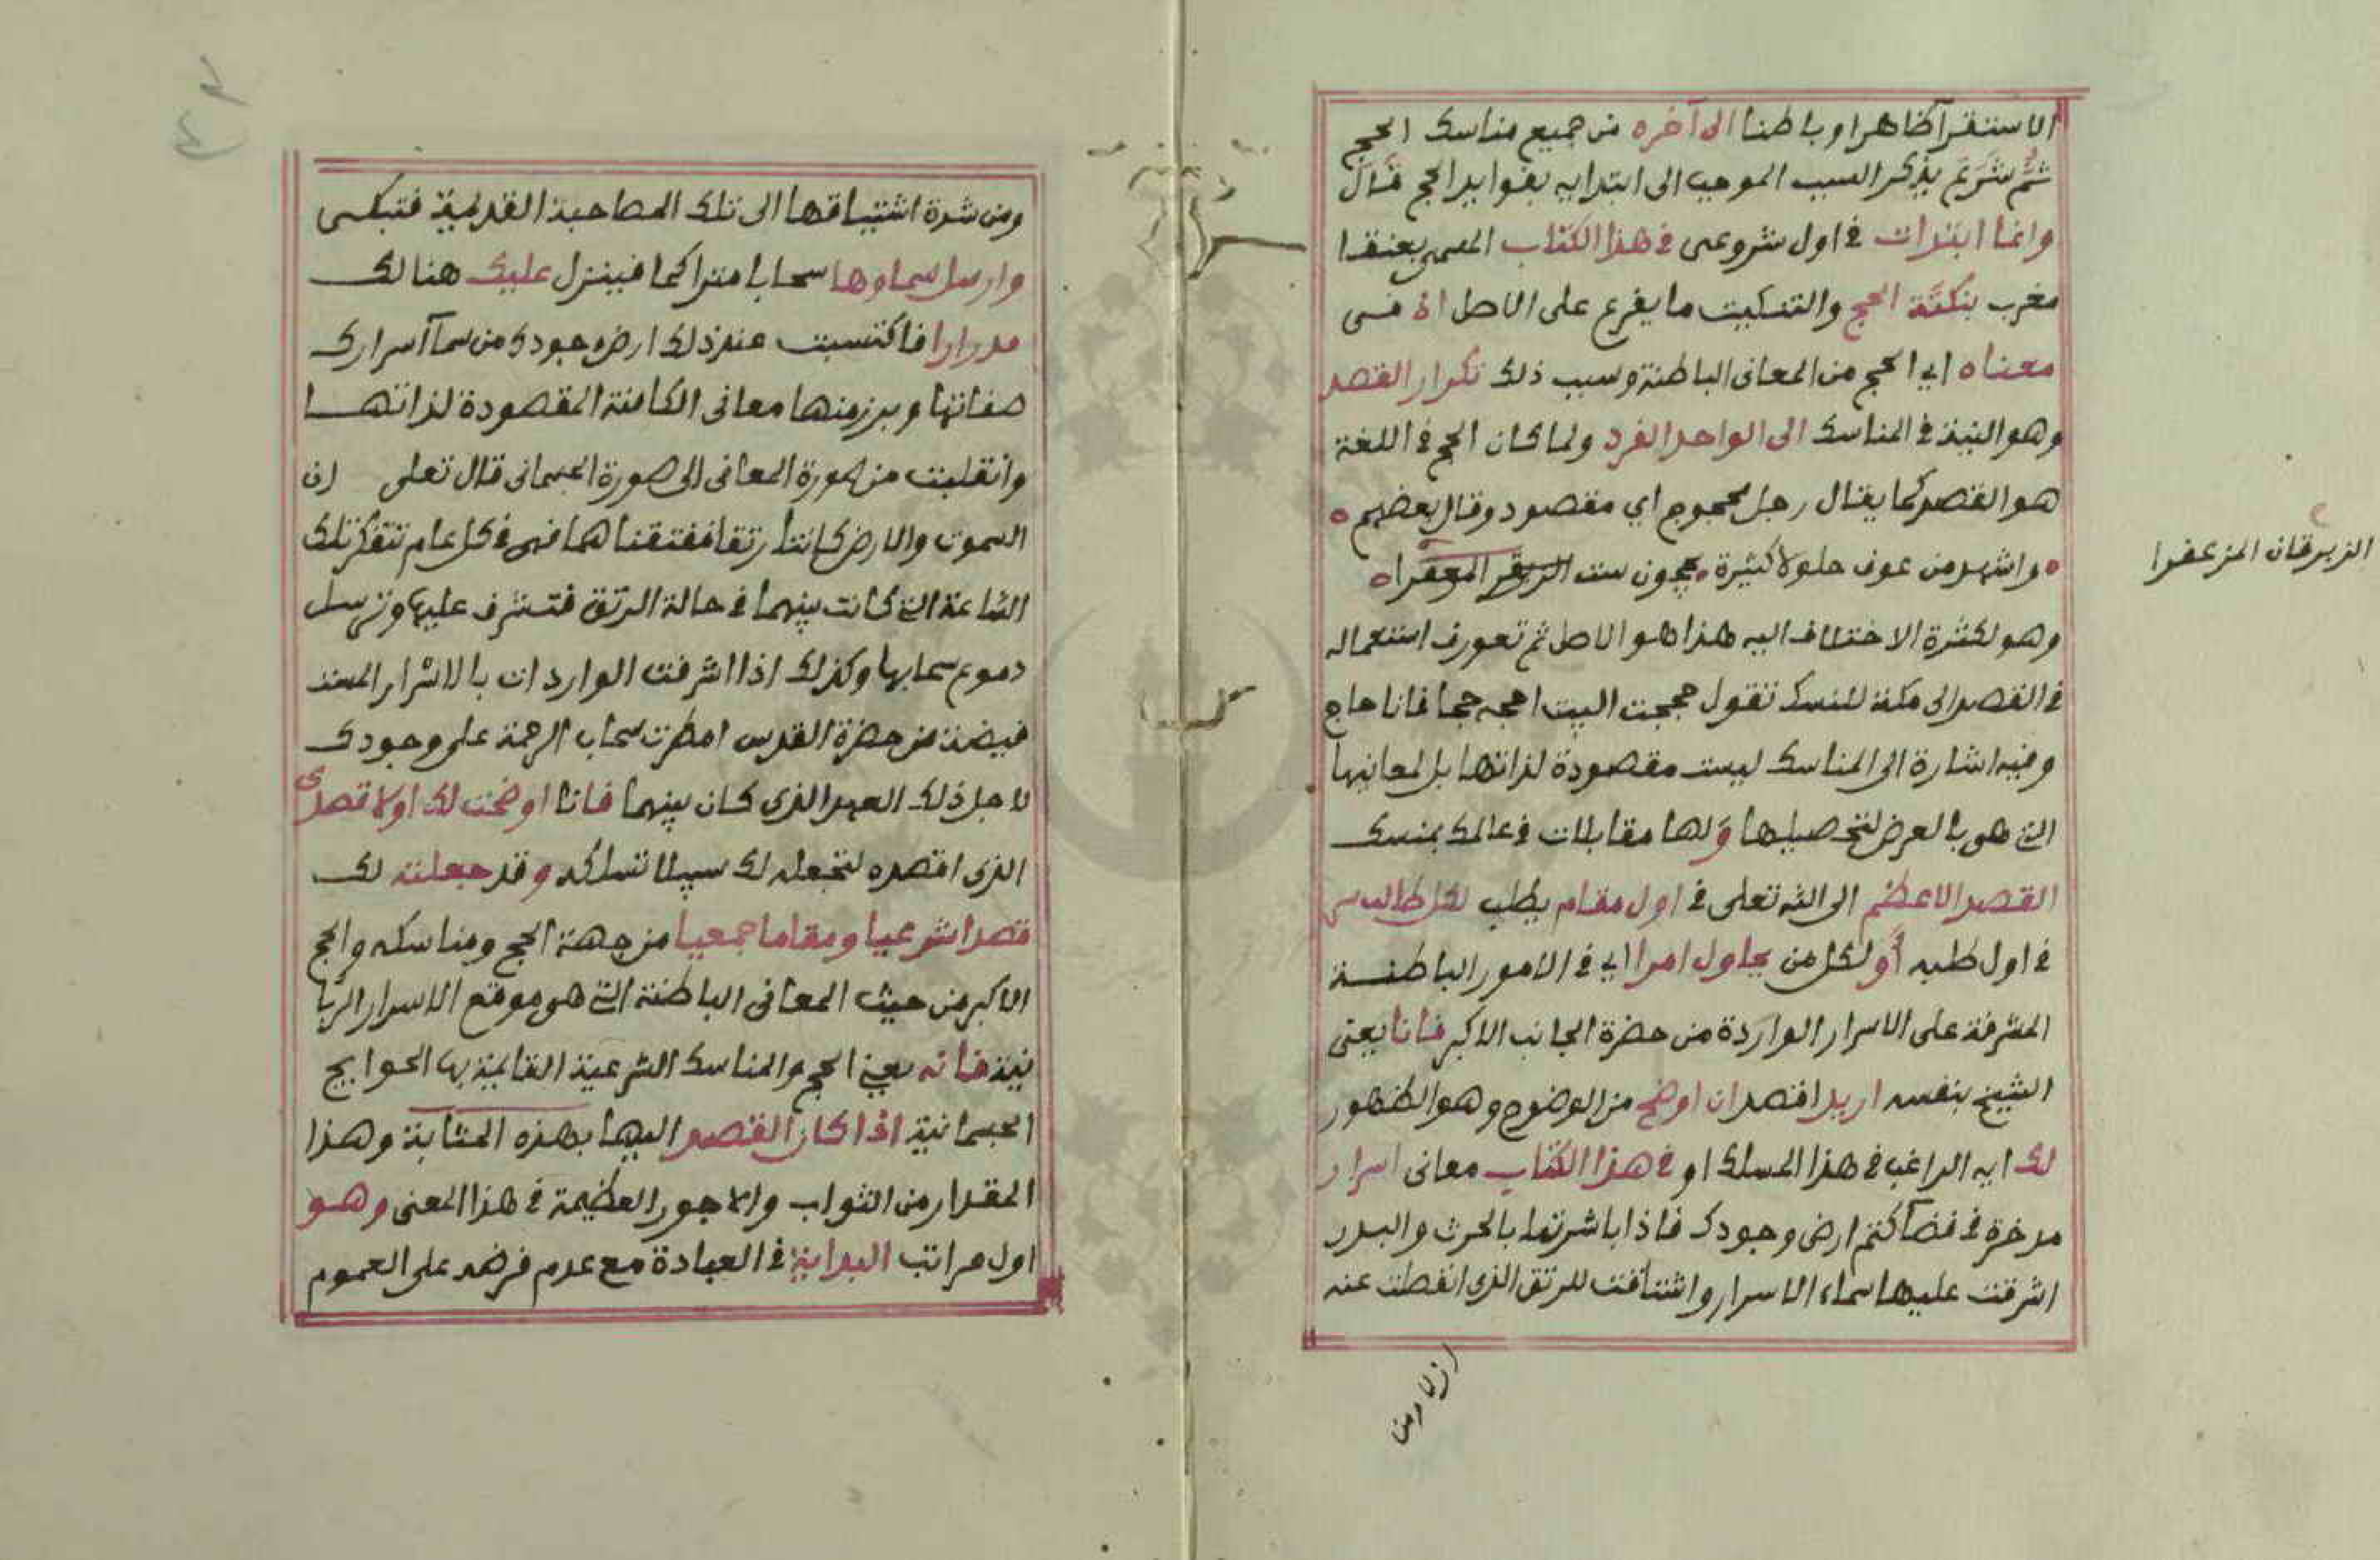 الاستقرآ ظاهرا وباطنا الى آخره من جميع مناسك الحج
ثم شرع يذكر السبب الموجب الى ابتدايه بفوايد الحج فقال
وانما ابتدات في اول شروعى في هذا الكتاب المسمى بعنقا
مغرب بنكتة الحج والتنكيت ما يفرع على الاصل اذ فى
معناه اي الحج من المعانى الباطنة وسبب ذلك تكرار القصد
وهو النية في المناسك الى الواحد الفرد ولما كان الحج في اللغة
هو القصد كما يقال رجل محجوج اي مقصود وقال بعضهم ٥
٥ واشهد من عوف حلولا كثيرة ٠ يحجون ست ٥
الزبرقان المزعفرا
وهو لكثرة الاختلاف اليه هذا هو الاصل ثم تعورف استعماله
في القصد الى مكة للنسك تقول حججت البيت احجه حجا فانا حاج
وفيه اشارة الى المناسك ليست مقصودة لذاتها بل لمعانيها
التي هى بالعرض لتحصيلها ولها مقابلات في عالمك بمنسك
القصد الاعظم الى الله تعلى في اول مقام يطلب لكل طالب سر
في اول طلبه أو لكل من يحاول امرا اي في الامور الباطنة
المشرفة على الاسرار الواردة من حضرة الجانب الاكبر فانا يعنى
الشيخ بنفسه اريد اقصد ان اوضح من الوضوح وهو الظهور
لك ايه الراغب في هذا المسلك او في هذا الكتاب معانى اسرار
مدخرة في فضآ كتم ارض وجودك فاذا باشرتها بالحرث والبدر
اشرقت عليها سماء الاسرار واشتاقت للرتق الذى انفطت عنه
ازلا ومن
ومن شدة اشتياقها الى تلك المصاحبة القديمة فتبكى
وارسل سماوها سحابا متراكما فينزل عليك هنالك
مدرارا فاكتسبت عند ذلك ارض وجودك من سمآ اسرارك
صفاتها وبرز منها معانى الكامنة المقصودة لذاتها
وانقلبت من صورة المعانى الى صورة الجسمانى قال تعلى ان
السموت والارض كانتا رتقا ففتقناهما فهى في كل عام تتفكر تلك
الساعة التي كانت بينهما في حالة الرتق فتشرف عليها وترسل
دموع سحابها وكذلك اذا اشرفت الواردات بالاسرار المستد
فيضة من حضرة القدس امطرت سحاب الرحمة على وجودك
لاجل ذلك العهد الذى كان بينهما فانا اوضحت لك اولا قصدى
الذى اقصده لتجعله لك سبيلا تسلكه وقد جعلته لك
قصدا شرعيا ومقاما جمعيا من جهة الحج ومناسكه والحج
الاكبر من حيث المعانى الباطنة التي هى موقع الاسرار الربا
نية فانه يعنى الحج والمناسك الشرعية القايمة بها الحوايج
الجسمانية اذا كان القصد اليها بهذه المثابة وهذا
المقدار من الثواب والاجور العظيمة في هذا المعنى وهو
اول مراتب البداية في العبادة مع عدم فرضه على العموم